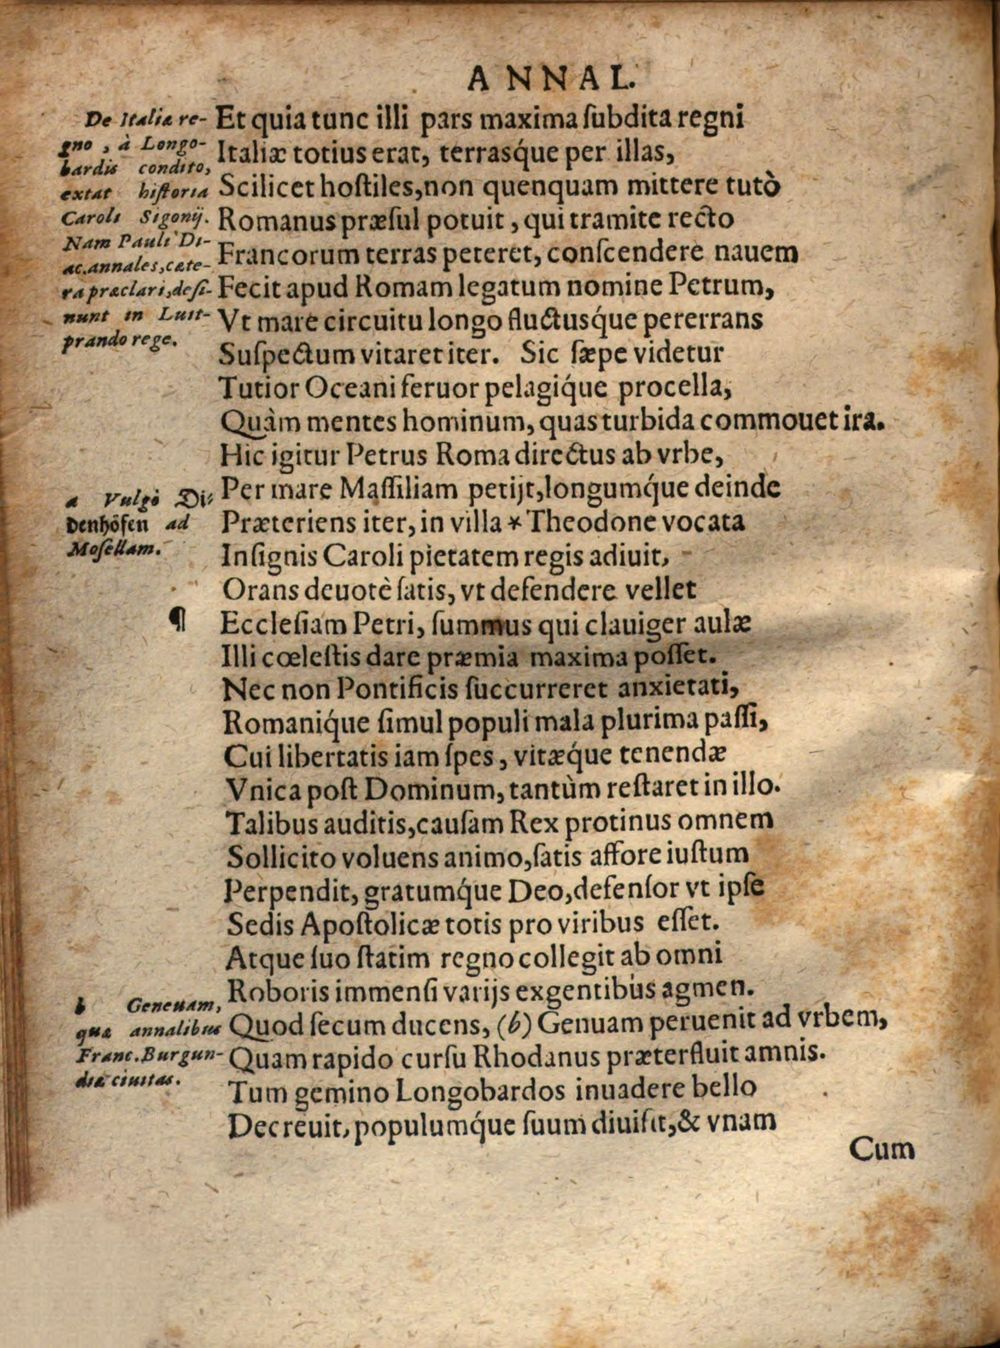 ANNAL.
De Italiæ re-
gno, à Longo-
bardis condito,
extat historia
Caroli Sigonij.
Nam Pauli Di-
ac. annales, cæte-
ra præclari, desi-
nunt in Luit-
prando rege.
Et quia tunc illi pars maxima ſubdita regni
Italiæ totius erat, terrasq́ue per illas,
Scilicet hoſtiles, non quenquam mittere tutò
Romanus præſul potuit, qui tramite recto
Francorum terras peteret, conſcendere nauem
Fecit apud Romam legatum nomine Petrum,
Vt mare circuitu longo fluctusq́ue pererrans
Suſpectum vitaret iter. Sic ſæpe videtur
Tutior Oceani feruor pelagiq́ue procella,
Quàm mentes hominum, quas turbida commouet ira.
Hic igitur Petrus Roma directus ab vrbe,
a Vulgò Di-
denhöfen ad
Mosellam.
Per mare Maſſiliam petijt, longumq́ue deinde
Præteriens iter, in villa * Theodone vocata
Inſignis Caroli pietatem regis adiuit,
Orans deuotè ſatis, vt defendere vellet
¶ Eccleſiam Petri, ſummus qui clauiger aulæ
Illi cœleſtis dare præmia maxima poſſet.
Nec non Pontificis ſuccurreret anxietati,
Romaniq́ue ſimul populi mala plurima paſſi,
Cui libertatis iam ſpes, vitæq́ue tenendæ
Vnica poſt Dominum, tantùm reſtaret in illo.
Talibus auditis, cauſam Rex protinus omnem
Sollicito voluens animo, ſatis affore iuſtum
Perpendit, gratumq́ue Deo, defenſor vt ipſe
Sedis Apoſtolicæ totis pro viribus eſſet.
Atque ſuo ſtatim regno collegit ab omni
Roboris immenſi varijs exgentibus agmen.
b Geneuam,
quæ annalibus
Franc. Burgun-
diæ ciuitas.
Quod ſecum ducens, (b) Genuam peruenit ad vrbem,
Quam rapido curſu Rhodanus præterfluit amnis.
Tum gemino Longobardos inuadere bello
Decreuit, populumq́ue ſuum diuiſit, & vnam
Cum